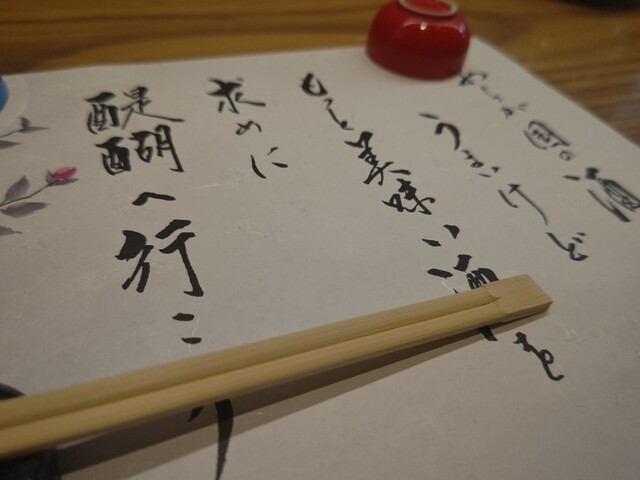 わが国の酒
うまいけど
もっと美味い酒を
求めに
醍醐へ行こう